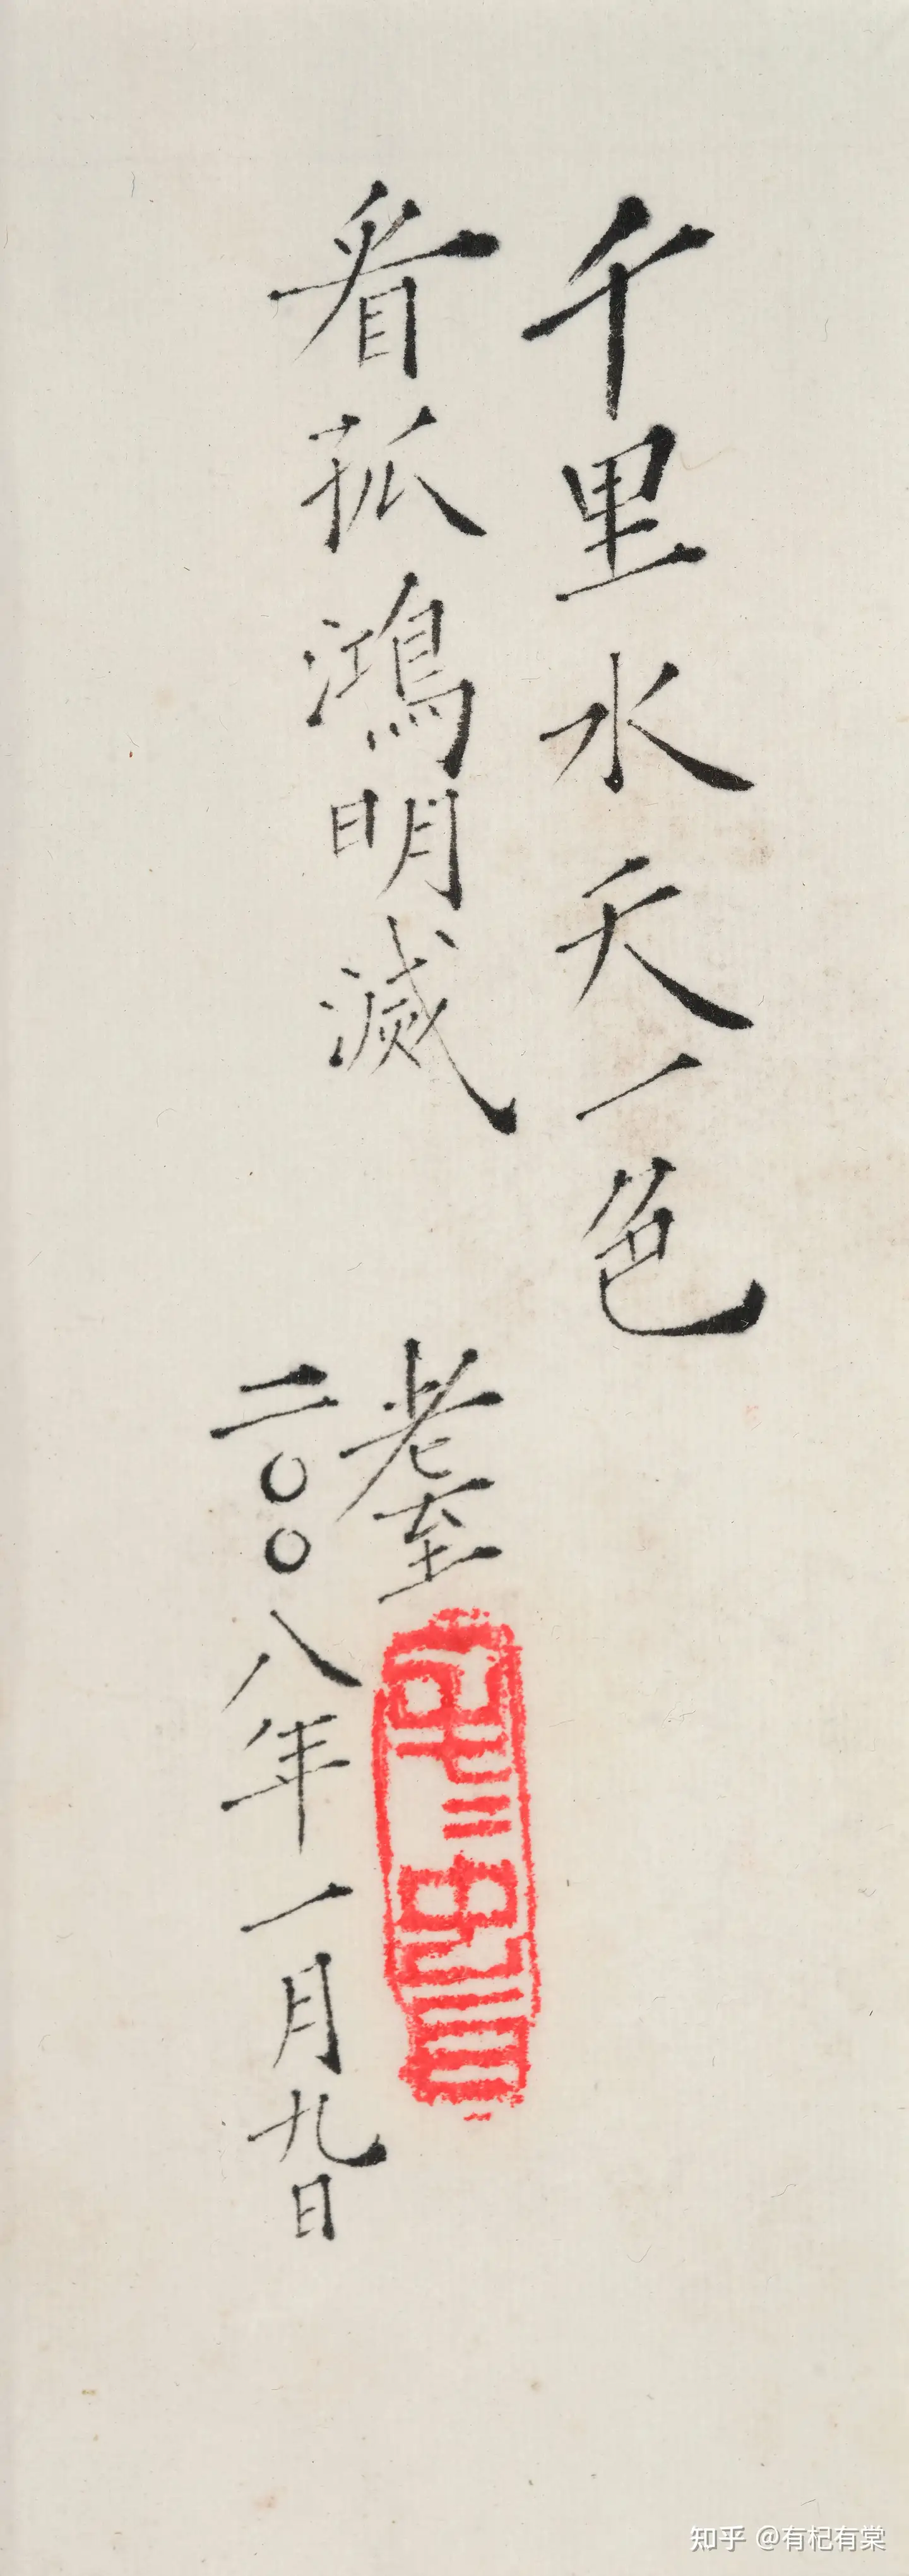 千里水天一色
看孤鴻明滅
耋
二〇〇八年一月九日
知乎 @有杞有棠